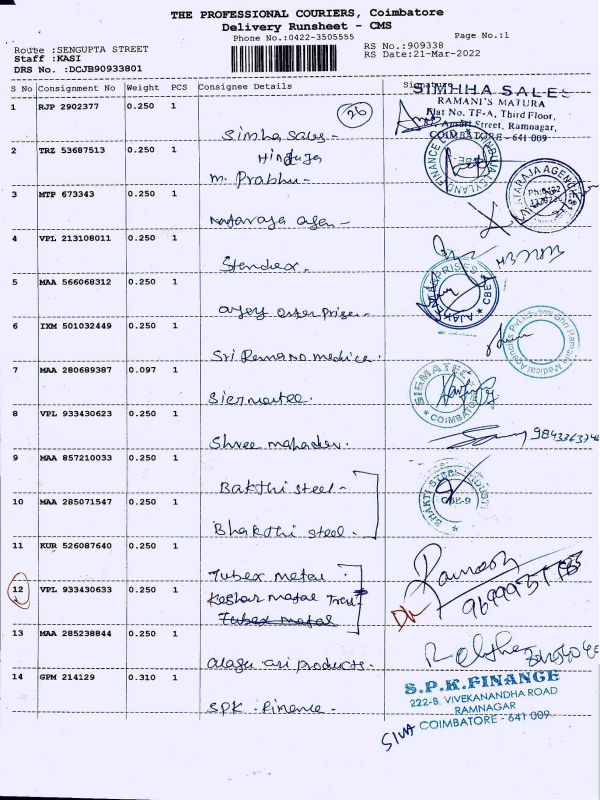 THE PROFESSIONAL COURIERS, Coimbatore
Delivery Runsheet - CMS
Phone No.:0422-3505555
Page No.:1
Route :SENGUPTA STREET
RS No.:909338
Staff :KASI
RS Date:21-Mar-2022
DRS No. :DCJB90933801
S No Consignment No Weight PCS Consignee Details
1 RJP 2902377 0.250 1
26
SIMHHA SALES
RAMANI'S MATURA
Flat No. TF-A, Third Floor,
Street, Ramnagar,
COIMBATORE - 641 009
Simha Sales -
2 TRZ 53687513 0.250 1
Hinduja
M. Prabhu -
3 MTP 673343 0.250 1
Nataraja agen -
4 VPL 213108011 0.250 1
Stendex.
5 MAA 566068312 0.250 1
ajay enterprise.
6 IXM 501032449 0.250 1
Sri Ramano medica.
7 MAA 280689387 0.097 1
SIGMATEC
COIMBATORE
8 VPL 933430623 0.250 1
Shree mahadev.
9 MAA 857210033 0.250 1
Bakthi steel -
10 MAA 285071547 0.250 1
BHAKTI STEEL INDUSTRY
CBE-9
Bhakthi steel.
11 KUR 526087640 0.250 1
Tubex metal.
Ramesh
12 VPL 933430633 0.250 1
Keshar metal Trad
Tubex metal
13 MAA 285238844 0.250 1
alagu ari products.
14 GPM 214129 0.310 1
S.P.K.FINANCE
222-B, VIVEKANANDHA ROAD
RAMNAGAR
COIMBATORE - 641 009
SPK Finance -
SIVA